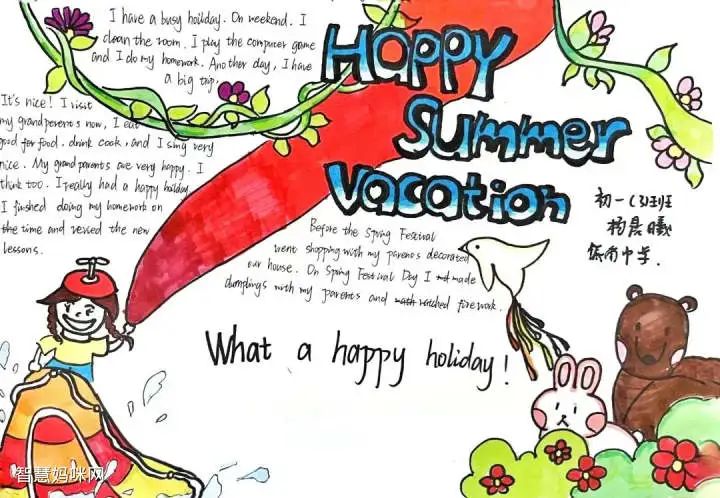 I have a busy holiday. On weekend. I
clean the room. I play the computer game
and I do my homework. Another day, I have
a big trip.
It's nice! I visit
my grandperents now, I eat
good for food. drink, cook, and I sing very
nice. My grandparents are very happy. I
think too. I really had a happy holiday
I finshed doing my homework on
the time and revised the new
lessons.
Happy
Summer
Vacation
初一(3)班
杨晨曦
中学.
Before the Spring Festival
went shopping with my parents decorated
our house. On Spring Festival Day I made
dumplings with my parents and watched firework.
What a happy holiday!
智慧妈咪网